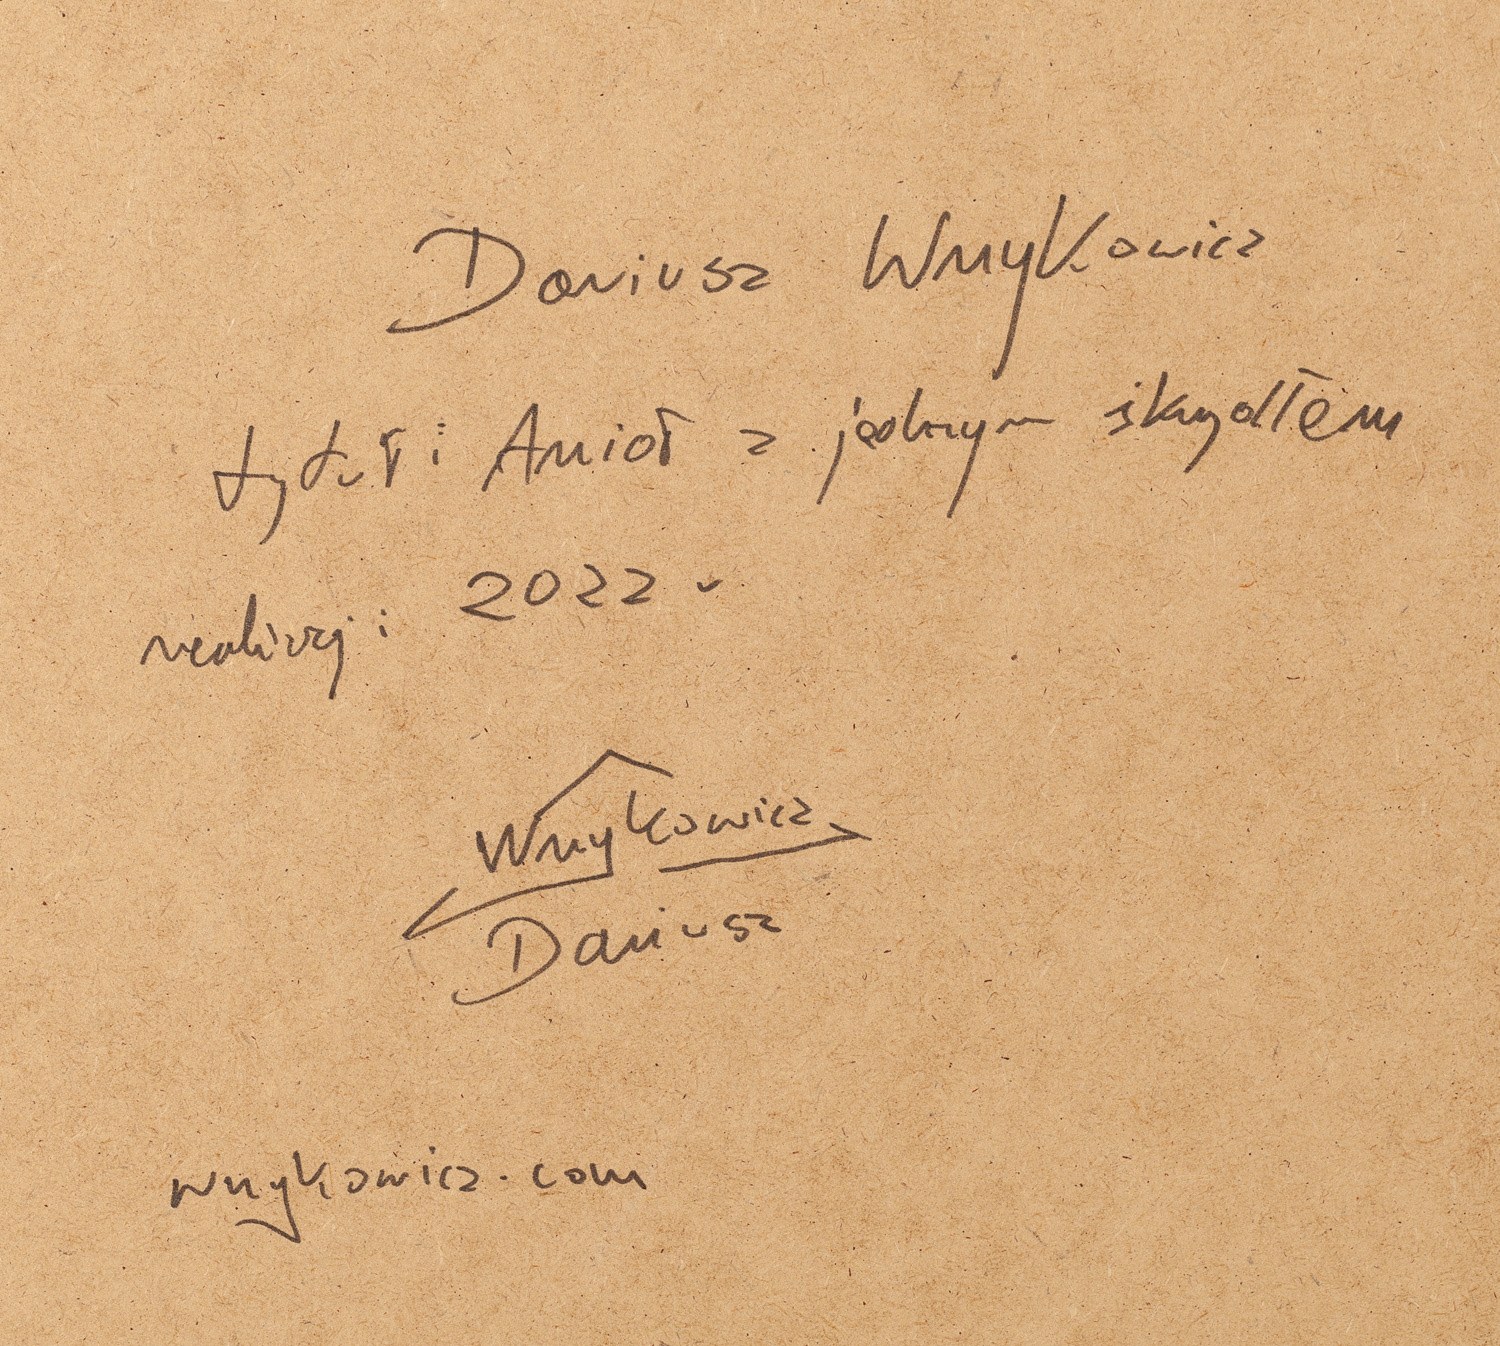 Dariusz Wnykowicz
tytuł: Anioł z jednym skrzydłem
realizacj: 2022 r
Wnykowicz
Dariusz
wnykowicz.com